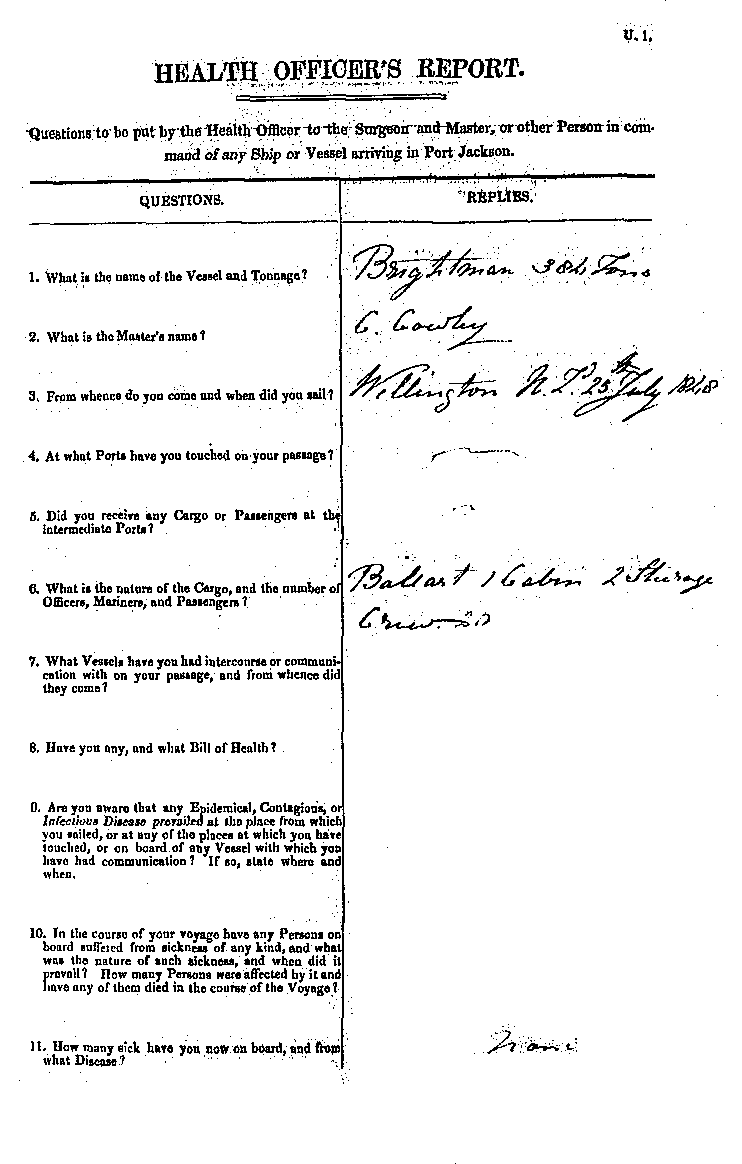 U. 1.
HEALTH OFFICER'S REPORT.
Questions to be put by the Health Officer to the Surgeon and Master, or other Person in com-
mand of any Ship or Vessel arriving in Port Jackson.
QUESTIONS.
REPLIES.
1. What is the name of the Vessel and Tonnage?
Brightman 384 Tons
2. What is the Master's name?
C. Cowley
3. From whence do you come and when did you sail?
Wellington N.Z. 25th July 1848
4. At what Ports have you touched on your passage?
5. Did you receive any Cargo or Passengers at the
intermediate Ports?
6. What is the nature of the Cargo, and the number of
Officers, Mariners, and Passengers?
Ballast 1 Cabin 2 Sturage
Crew
7. What Vessels have you had intercourse or communi-
cation with on your passage, and from whence did
they come?
8. Have you any, and what Bill of Health?
9. Are you aware that any Epidemical, Contagious, or
Infectious Disease prevailed at the place from which
you sailed, or at any of the places at which you have
touched, or on board of any Vessel with which you
have had communication? If so, state where and
when.
10. In the course of your voyage have any Persons on
board suffered from sickness of any kind, and what
was the nature of such sickness, and when did it
prevail? How many Persons were affected by it and
have any of them died in the course of the Voyage?
11. How many sick have you now on board, and from
what Disease?
None